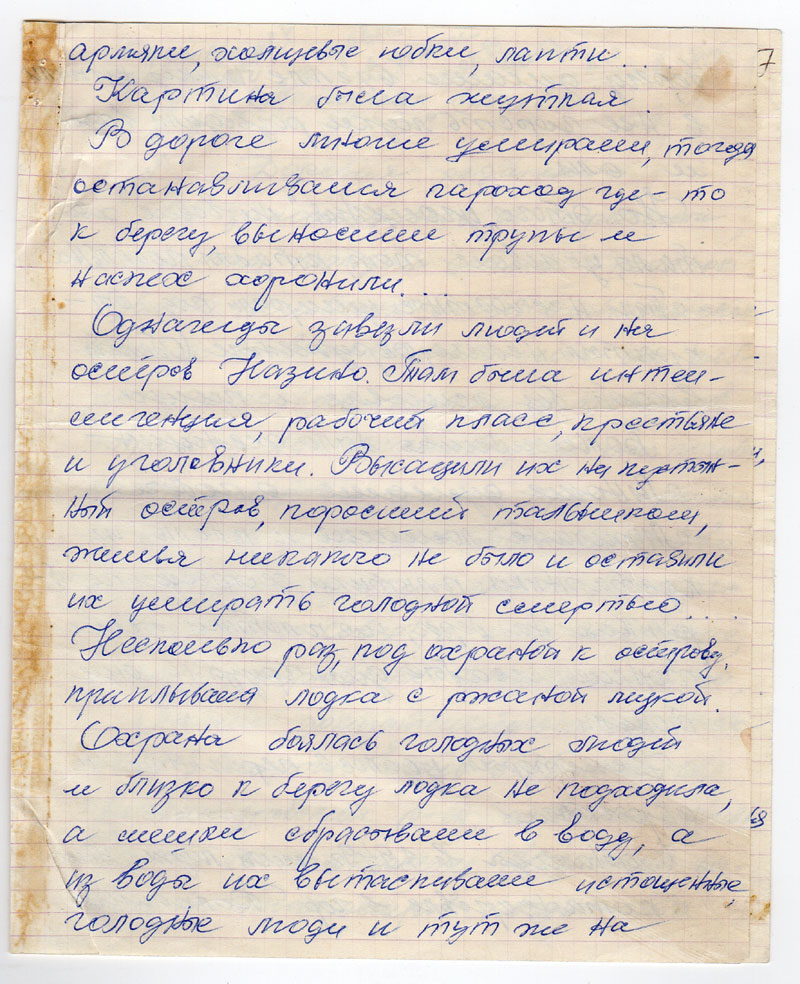 7
армяки, холщевые юбки, лапти...
Картина была жуткая.
В дороге многие умирали, тогда
останавливался пароход где-то
к берегу, выносили трупы и
наспех хоронили...
Однажды завезли людей и на
остров Назино. Там была интел-
лигенция, рабочий класс, крестьяне
и уголовники. Высадили их на пустын-
ный остров, поросший тальником,
жилья никакого не было и оставили
их умирать голодной смертью...
Несколько раз, под охраной к острову,
приплывала лодка с ржаной мукой.
Охрана боялась голодных людей
и близко к берегу лодка не подходила,
а мешки сбрасывали в воду, а
из воды их вытаскивали истощенные,
голодные люди и тут же на